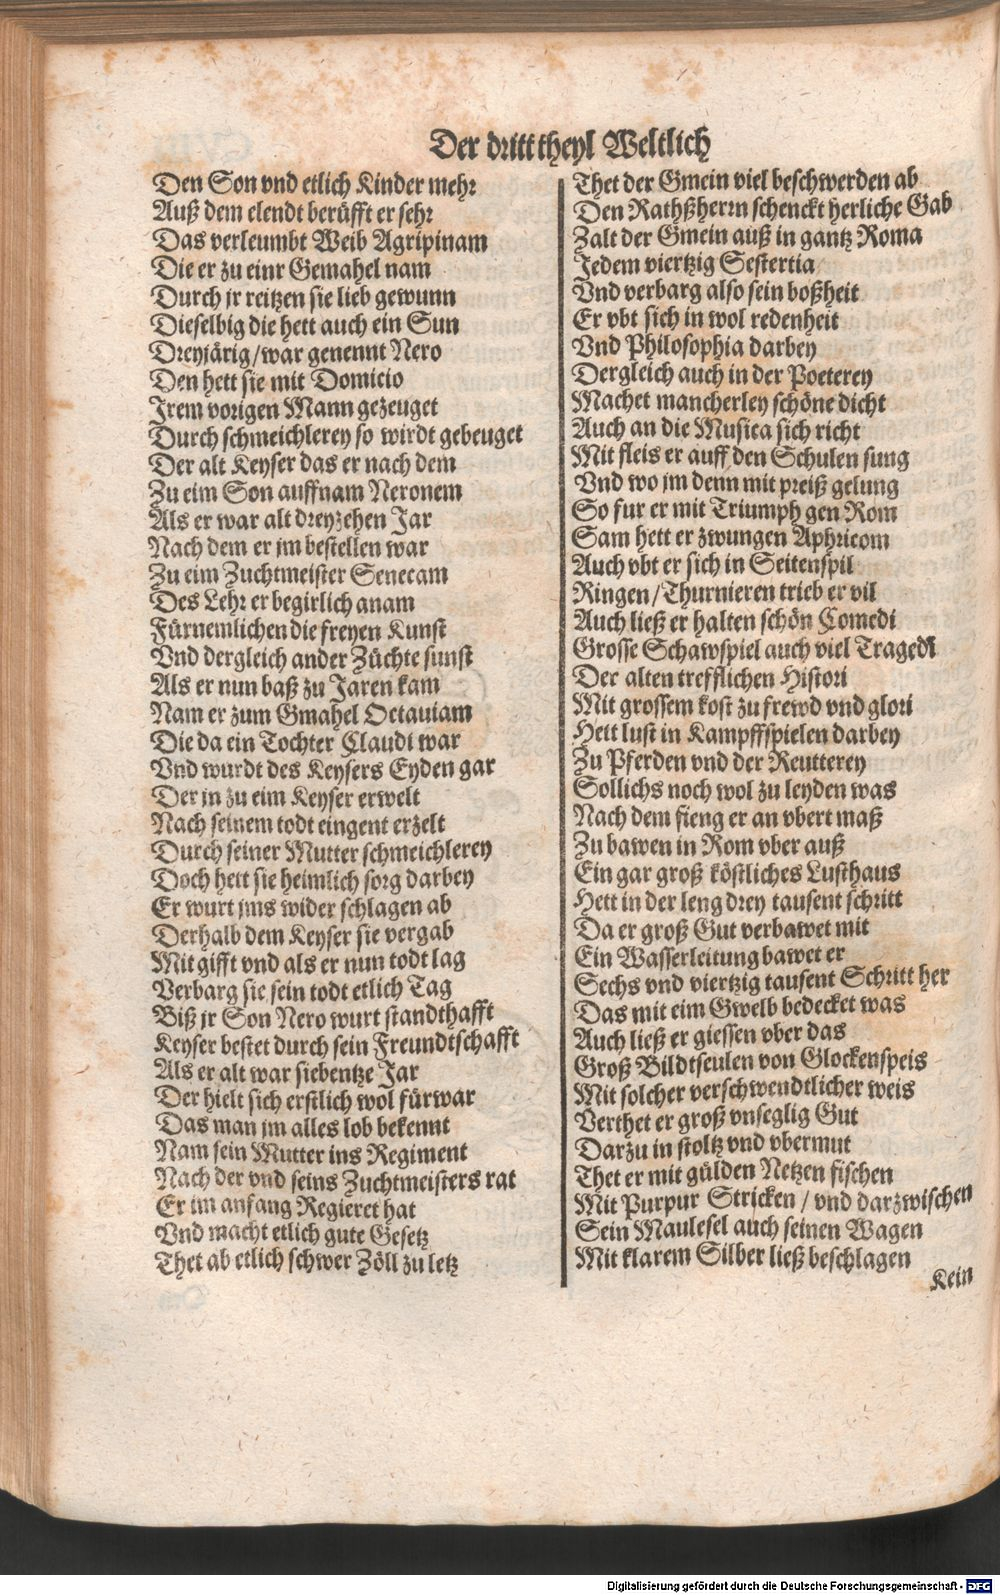 Der dritt theyl Weltlich
Den Son vnd etlich Kinder mehr
Auß dem elendt berüfft er sehr
Das verleumbt Weib Agripinam
Die er zu einr Gemahel nam
Durch jr reitzen sie lieb gewunn
Dieselbig die hett auch ein Sun
Dreyjärig/war genennt Nero
Den hett sie mit Domicio
Irem vorigen Mann gezeuget
Durch schmeichlerey so wirdt gebeuget
Der alt Keyser das er nach dem
Zu eim Son auffnam Neronem
Als er war alt dreyzehen Jar
Nach dem er jm bestellen war
Zu eim Zuchtmeister Senecam
Des Lehr er begirlich anam
Fürnemlichen die freyen Kunst
Vnd dergleich ander Züchte sunst
Als er nun baß zu Jaren kam
Nam er zum Gmahel Octauiam
Die da ein Tochter Claudi war
Vnd wurdt des Keysers Eyden gar
Der jn zu eim Keyser erwelt
Nach seinem todt eingent erzelt
Durch seiner Mutter schmeichlerey
Doch hett sie heimlich sorg darbey
Er wurt jms wider schlagen ab
Derhalb dem Keyser sie vergab
Mit gifft vnd als er nun todt lag
Verbarg sie sein todt etlich Tag
Biß jr Son Nero wurt standthafft
Keyser bestet durch sein Freundtschafft
Als er alt war siebentze Jar
Der hielt sich erstlich wol fürwar
Das man jm alles lob bekennt
Nam sein Mutter ins Regiment
Nach der vnd seins Zuchtmeisters rat
Er im anfang Regieret hat
Vnd macht etlich gute Gesetz
Thet ab etlich schwer Zöll zu letz
Thet der Gmein viel beschwerden ab
Den Rathßherrn schenckt herliche Gab
Zalt der Gmein auß in gantz Roma
Jedem viertzig Sestertia
Vnd verbarg also sein boßheit
Er vbt sich in wol redenheit
Vnd Philosophia darbey
Dergleich auch in der Poeterey
Machet mancherley schöne dicht
Auch an die Musica sich richt
Mit fleis er auff den Schulen sung
Vnd wo jm denn mit preiß gelung
So fur er mit Triumph gen Rom
Sam hett er zwungen Aphricom
Auch vbt er sich in Seitenspil
Ringen/Thurnieren trieb er vil
Auch ließ er halten schön Comedi
Grosse Schawspiel auch viel Tragedi
Der alten trefflichen Histori
Mit grossem kost zu frewd vnd glori
Hett lust in Kampffspielen darbey
Zu Pferden vnd der Reutterey
Sollichs noch wol zu leyden was
Nach dem fieng er an vbert maß
Zu bawen in Rom vber auß
Ein gar groß köstliches Lusthaus
Hett in der leng drey tausent schritt
Da er groß Gut verbawet mit
Ein Wasserleitung bawet er
Sechs vnd viertzig tausent Schritt her
Das mit eim Gwelb bedecket was
Auch ließ er giessen vber das
Groß Bildtseulen von Glockenspeis
Mit solcher verschwendtlicher weis
Verthet er groß vnseglig Gut
Darzu in stoltz vnd vbermut
Thet er mit gülden Netzen fischen
Mit Purpur Stricken / vnd darzwischen
Sein Maulesel auch seinen Wagen
Mit klarem Silber ließ beschlagen
Kein
Digitalisierung gefördert durch die Deutsche Forschungsgemeinschaft - DFG